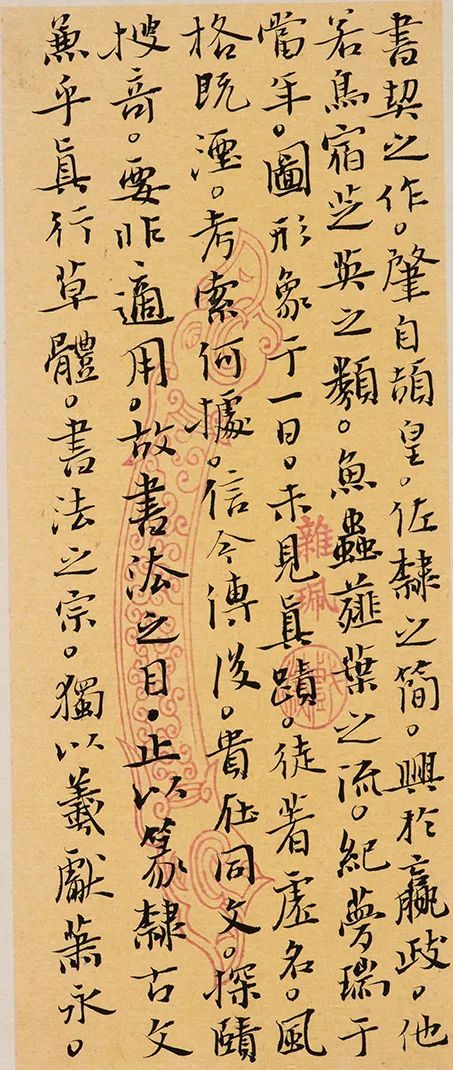 書契之作。肇自頡皇。佐隸之簡。興於嬴政。他
若鳥宿芝英之類。魚蟲薤葉之流。紀夢瑞于
當年。圖形象于一日。未見眞蹟。徒著虛名。風
格既湮。考索何據。信今傳後。貴在同文。探賾
搜竒。要非適用。故書法之目。止以篆隸古文
兼乎眞行草體。書法之宗。獨以羲獻蕭永。
雜珮